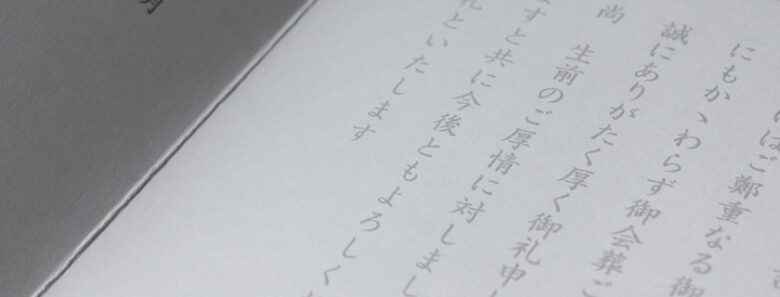 はご鄭重なる御
にもかゝわらず御会葬ご
誠にありがたく厚く御礼申
尚
生前のご厚情に対しまし
すと共に今後ともよろしく
礼といたします
月